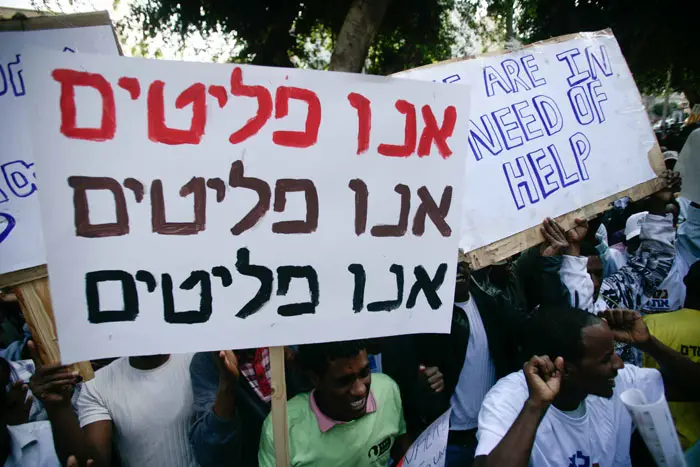 אנו פליטים
אנו פליטים
אנו פליטים
ARE IN
NEED OF
HELP